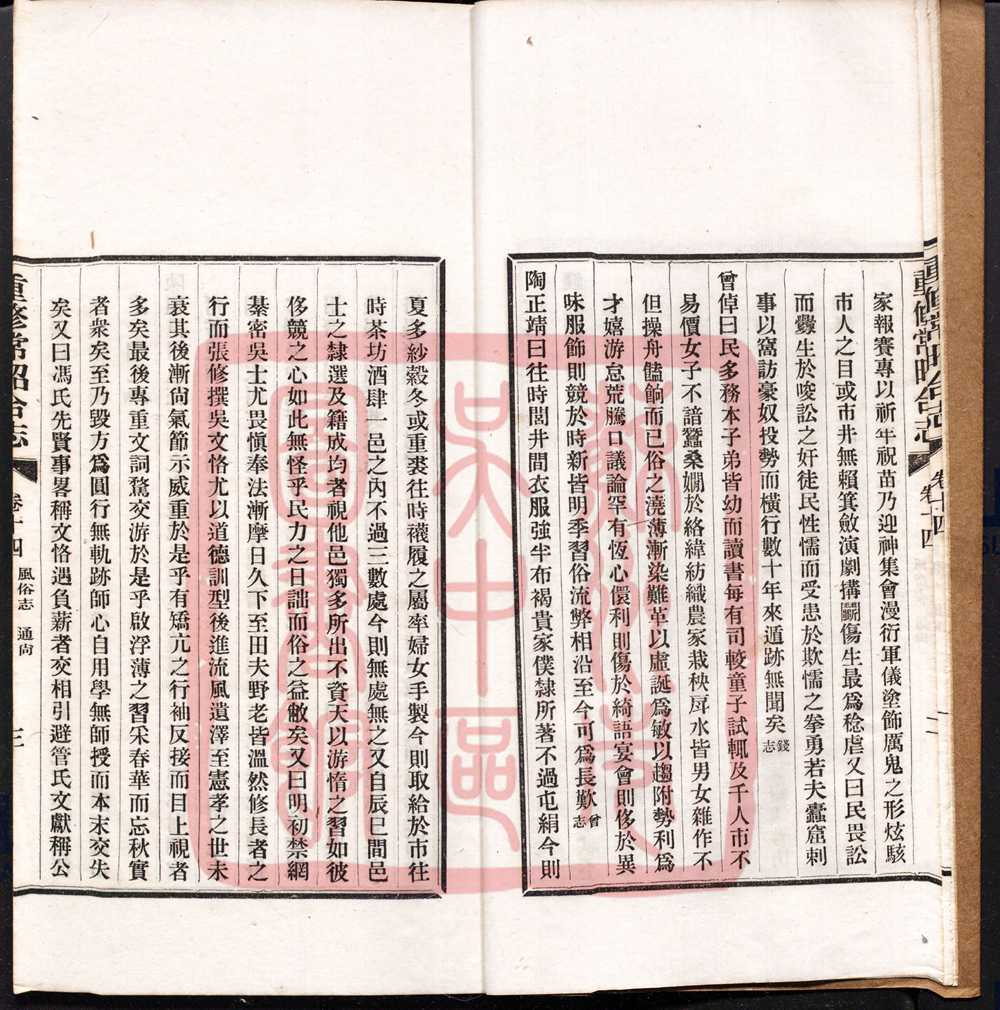 重修常昭合志 卷十四 二
家報賽專以祈年祝苗乃迎神集會漫衍軍儀塗飾厲鬼之形炫駭
市人之目或市井無賴箕斂演劇搆鬭傷生最爲稔虐又曰民畏訟
而釁生於唆訟之奸徒民性懦而受患於欺懦之拳勇若夫蠹窟刺
事以窩訪豪奴投勢而橫行數十年來遁跡無聞矣錢志
曾倬曰民多務本子弟皆幼而讀書每有司較童子試輒及千人市不
易價女子不諳蠶桑嫺於絡緯紡織農家栽秧戽水皆男女雜作不
但操舟饁餉而已俗之澆薄漸染難革以虛誕爲敏以趨附勢利爲
才嬉游怠荒騰口議論罕有恆心儇利則傷於綺語宴會則侈於異
味服飾則競於時新皆明季習俗流弊相沿至今可爲長歎曾志
陶正靖曰往時閭井間衣服強半布褐貴家僕隸所著不過屯絹今則
夏多紗縠冬或重裘往時襪履之屬率婦女手製今則取給於市往
時茶坊酒肆一邑之內不過三數處今則無處無之又自辰巳間邑
士之隸選及籍成均者視他邑獨多所出不資天以游惰之習如彼
侈競之心如此無怪乎民力之日詘而俗之益敝矣又曰明初禁網
綦密吳士尤畏愼奉法漸摩日久下至田夫野老皆溫然修長者之
行而張修撰吳文恪尤以道德訓型後進流風遺澤至憲孝之世未
衰其後漸尙氣節示威重於是乎有矯亢之行袖反接而目上視者
多矣最後專重文詞騖交游於是乎啟浮薄之習采春華而忘秋實
者衆矣至乃毀方爲圓行無軌跡師心自用學無師授而本末交失
矣又曰馮氏先賢事畧稱文恪遇負薪者交相引避管氏文獻稱公
重修常昭合志 卷十四 風俗志 通尙 三
吳中區圖書館